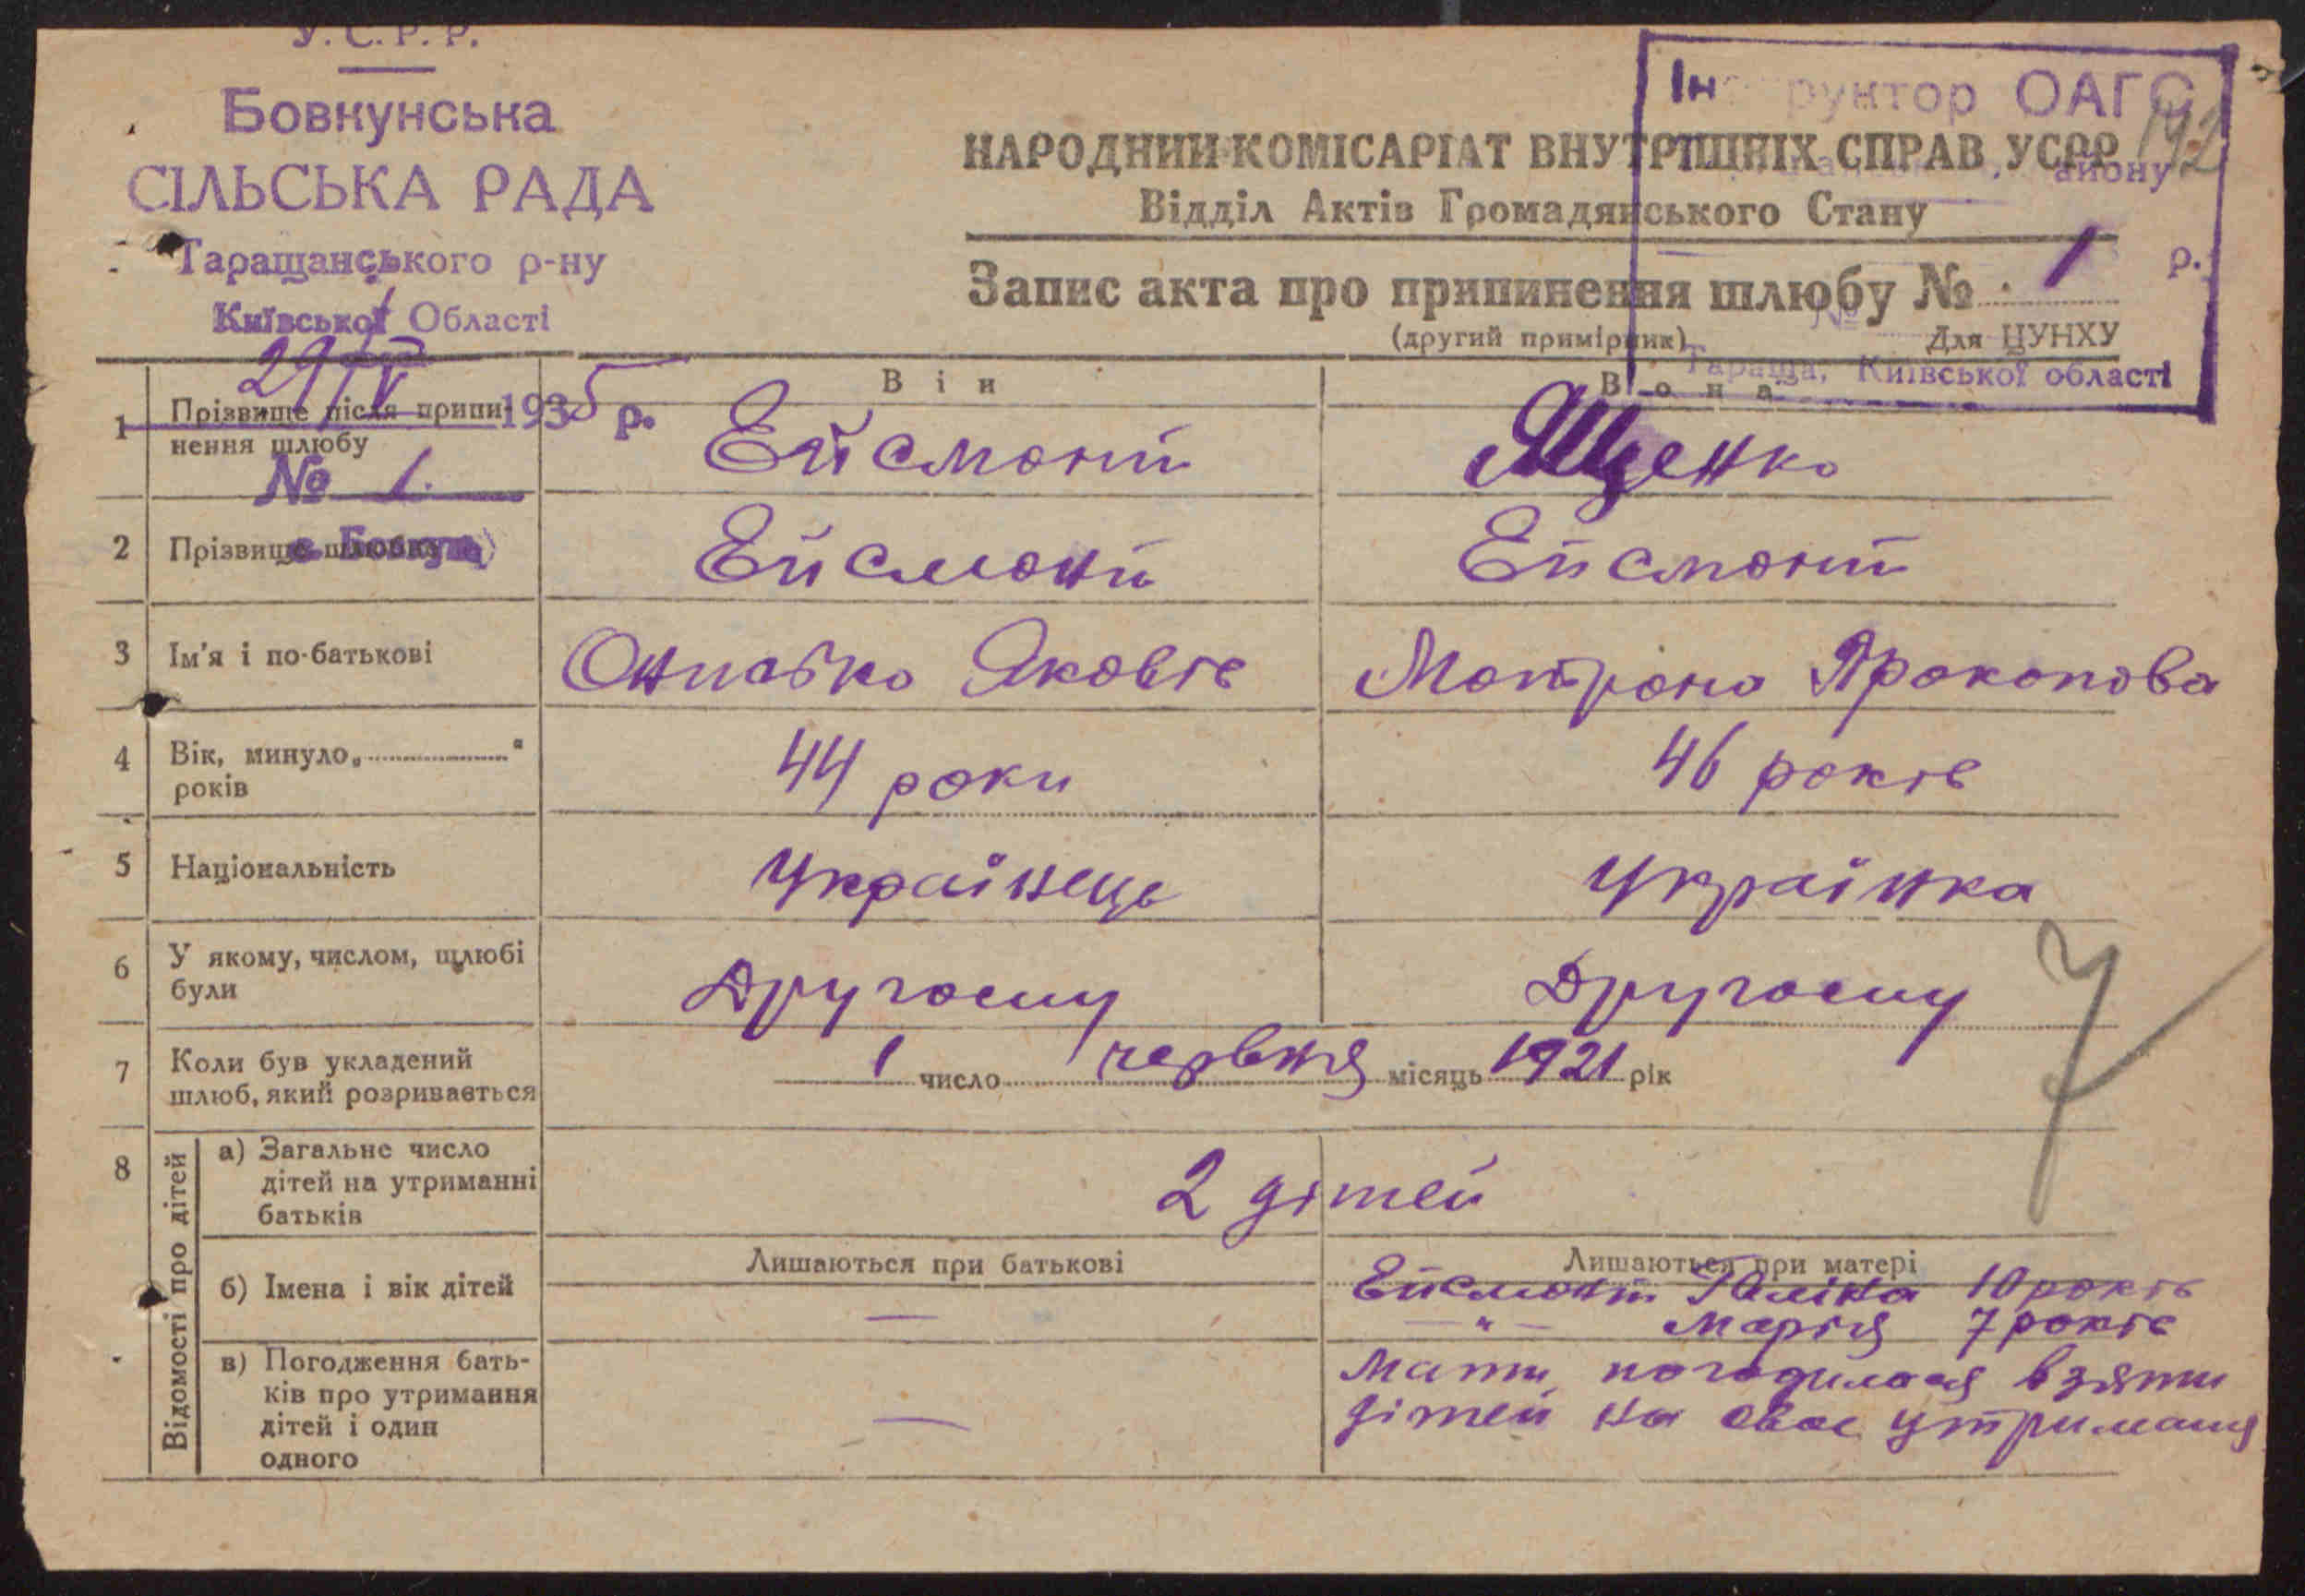 У.С.Р.Р.
Бовкунська
СІЛЬСЬКА РАДА
Таращанського р-ну
Київської Області
29/V 1935 р.
№ 1.
с. Бовкун
Інструктор ОАГС
району
р.
№
Тараща, Київської області
192
НАРОДНИЙ КОМІСАРІАТ ВНУТРІШНІХ СПРАВ УСРР
Відділ Актів Громадянського Стану
Запис акта про припинення шлюбу № 1
(другий примірник) Для ЦУНХУ
Він Вона
1 Прізвище після припинення шлюбу Ейсмонт Ященко
2 Прізвище шлюбне Ейсмонт Ейсмонт
3 Ім'я і по-батькові Яковів Мотрона Прокопова
4 Вік, минуло „ “ років 44 роки 46 років
5 Національність Українець Українка
6 У якому, числом, шлюбі були Другому Другому
7 Коли був укладений
шлюб, який розривається
1 число червня місяць 1921 рік
7
8 Відомості про дітей
а) Загальне число
дітей на утриманні
батьків
2 дітей
Лишаються при батькові Лишаються при матері
б) Імена і вік дітей — Ейсмонт 10 років
— " — Марія 7 років
в) Погодження бать-
ків про утримання
дітей і один
одного
—
Мати погодилася взяти
дітей на своє утримання